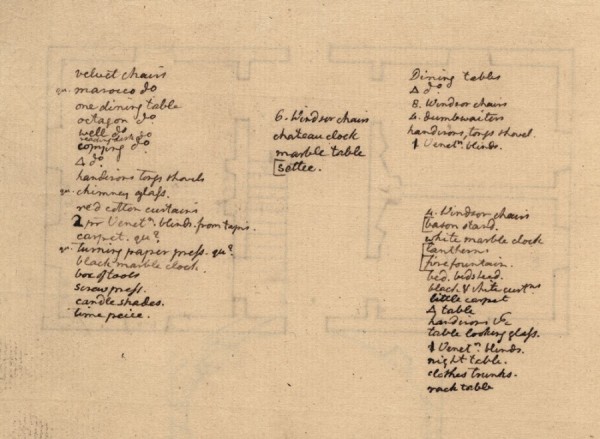 velvet chairs
qu. marocco do
one dining table
octagon do
well do
reading desk do
copying do.
Δ do.
handirons tongs shovels
qu. chimney glass.
red cotton curtains
2 pr Venetn. blinds. from tapis.
carpet. qu?
qu. turning paper press. qu?
black marble clock.
box of tools
screw press.
candle shades.
time peice.
6. Windsor chairs
chateau clock
marble table
[settee.
Dining tables
Δ do.
8. Windsor chairs
4. dumbwaiters
handirons tongs shovel.
1 Venetn. blinds.
4. Windsor chairs
[bason stand.
white marble clock
[lanthern.
[fire fountain.
bed. bidstead.
black & white curtns
little carpet
Δ table
handirons &c
table looking glass.
1 Venetn. blinds.
night table.
clothes trunks.
rack table